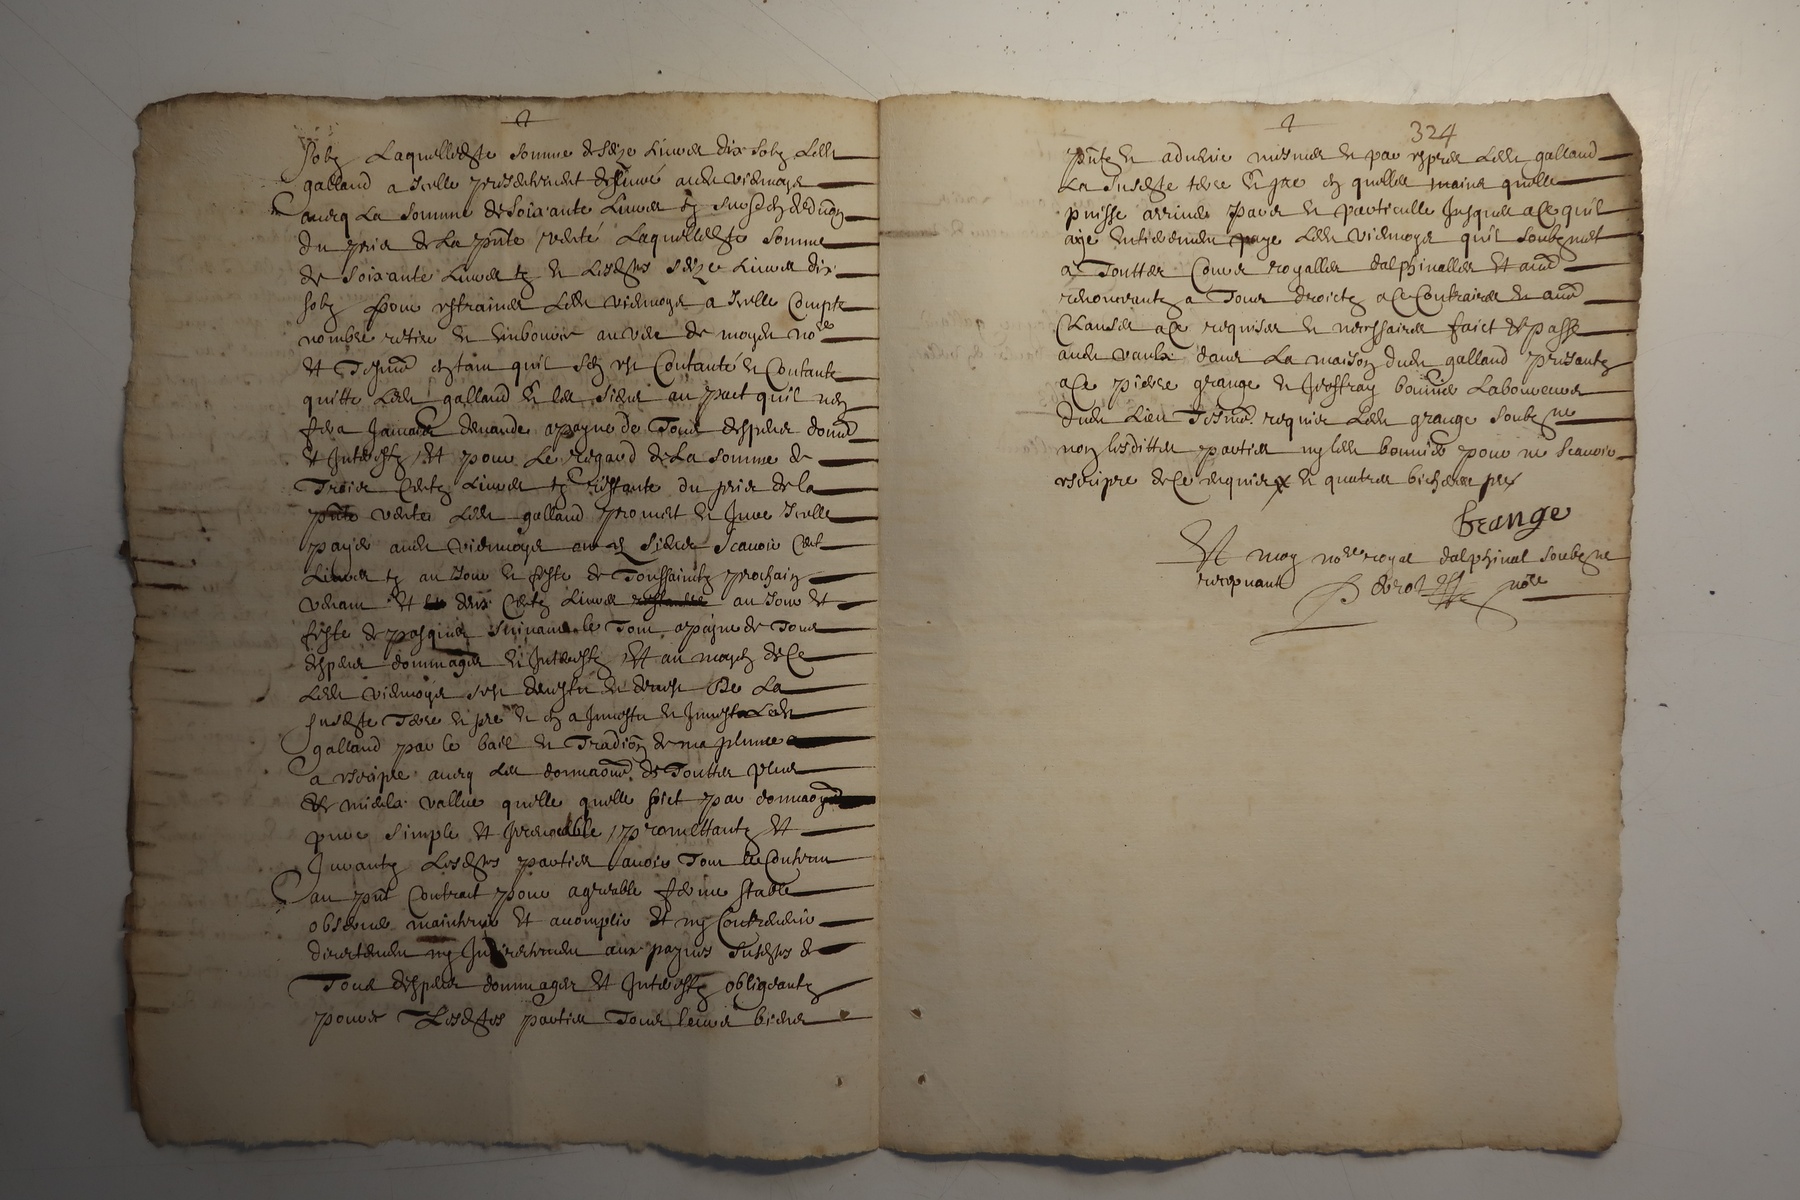 solz Laquelle dte somme de seze livres dix solz Ledt
galland a icelle presentement deslivré audt viennoys
avecq La somme de soixante Livres tz
du pris de La pnte vente Laquelle dte somme
de soixante Livres tz et Lesdtes seize Livres dix
solz ledt viennoys a icelle compte
nombré retiré et emboursé au veu de moydt nore
et tesmoins en tant qu'il s'en est contanté et contante
quitte Ledt galland et les siens au pact qu'il n'en
sera jamais demandé a peyne de tous despens domma
et interestz Et pour Le regard de La somme de
Trois centz Livres tz restante du pris de la
pnte vente Ledt galland promet et jure icelle
payer audt viennoys ou es siens scavoir cent
Livres tz au jour et feste de Toussaintz prochain
venant et deux centz Livres au jour et
feste de pasques suivant le tout a peyne de tous
despens dommages et interestz Et au moyen de ce
Ledt viennoys s'est desvestu et devest De La
susdte terre et pré et en a investu et investe Ledt
galland par le bail et tradion de ma plume
a escripre avecq Les donnaons de touttes plus
et mieulx vallue quelle quelle soict par donnaon
pure simple et irrevocable promettantz Et
Jurantz Lesdtes parties avoir tout le contenu
au pnt contract pour agreable ferme stable
observer maintenir et acomplir et ny contrevenir
directement ny indirectement aux peynes susdtes de
Tous despens dommages Et interestz obligeantz
pource Lesdtes parties tous leurs biens
324
pntz et advenir mesmes et par expres Ledt galland
La susdte terre et pré en quelles mains quelle
puisse arriver pour et particulle jusques a ce qu'il
aye entierement payé Ledt viennoys qu'il soubzmet
a Touttes cours royalles dalphinalles et aues
renonceantz a tous droictz a ce contraires et aues
Clauses a ce requises et necessaires faict et passé
audt vaulx dans La maison dudt galland presantz
a ce pierre grange et jeoffray bonnet Laboureurs
dudt Lieu tesmoins requis Ledt grange soubzne
non lesdittes parties ny ledt bonnet pour ne scavoir
escripre de ce requis et quatres bicherees pré
Grange
Et moy nore royal dalphinal soubzne
recepvant nore